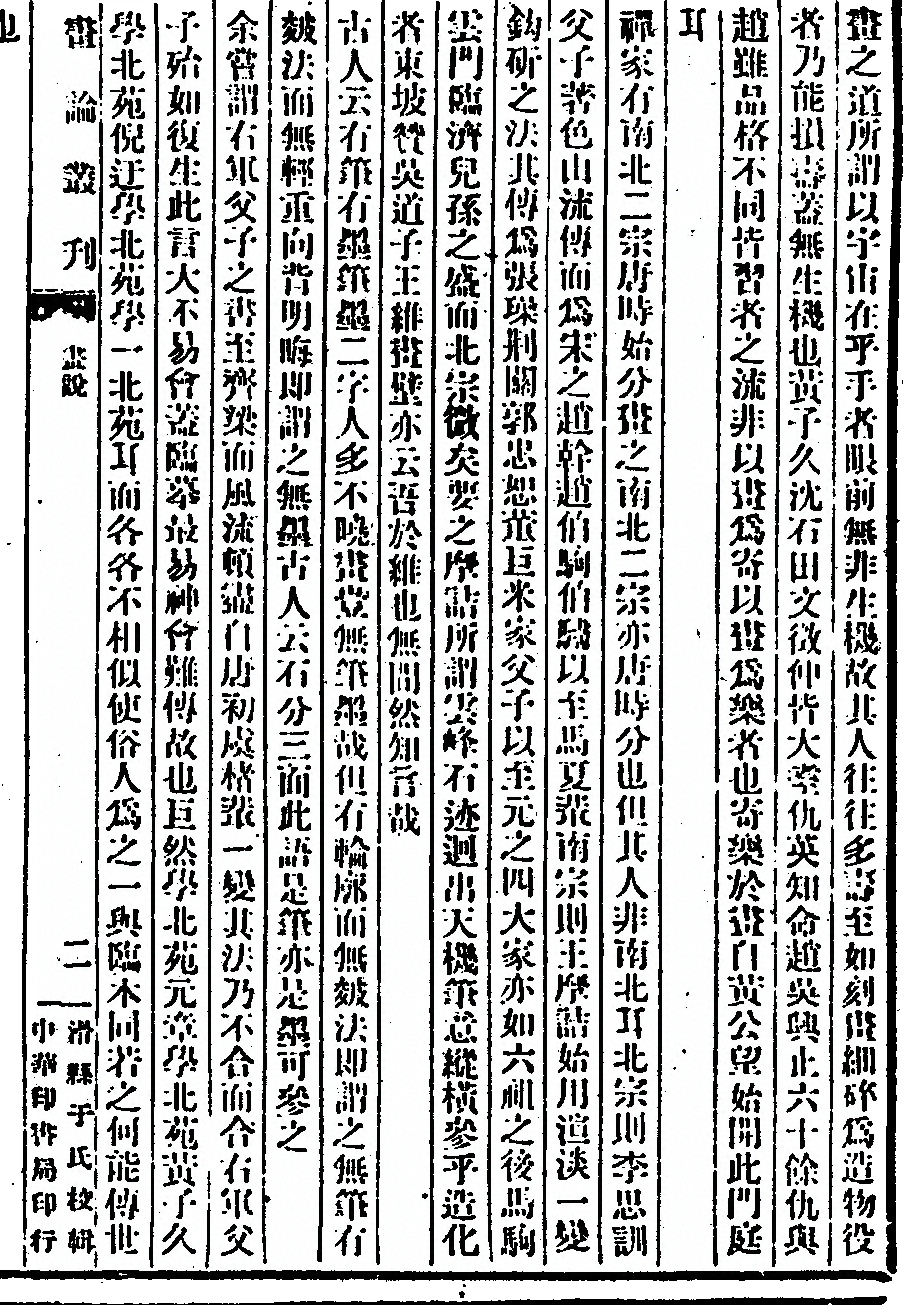 畫之道所謂以宇宙在乎手者眼前無非生機故其人往往多壽至如刻畫細碎爲造物役
者乃能損壽蓋無生機也黃子久沈石田文徵仲皆大耋仇英知命趙吳興止六十餘仇與
趙雖品格不同皆習者之流非以畫爲寄以畫爲樂者也寄樂於畫自黃公望始開此門庭
耳
禪家有南北二宗唐時始分畫之南北二宗亦唐時分也但其人非南北耳北宗則李思訓
父子著色山流傳而爲宋之趙幹趙伯駒伯驌以至馬夏裴南宗則王摩詰始用渲淡一變
鈎斫之法其傳爲張璪荆關郭忠恕董巨米家父子以至元之四大家亦如六祖之後馬駒
雲門臨濟兒孫之盛而北宗微矣要之摩詰所謂雲峰石迹迥出天機筆意縱橫參乎造化
者東坡贊吳道子王維畫壁亦云吾於維也無間然知言哉
古人云有筆有墨筆墨二字人多不曉畫豈無筆墨哉但有輪廓而無皴法即謂之無筆有
皴法而無輕重向背明晦即謂之無墨古人云石分三面此語是筆亦是墨可參之
余嘗謂右軍父子之書至齊梁而風流頓盡自唐初虞褚輩一變其法乃不合而合右軍父
子殆如復生此言大不易會蓋臨摹最易神會難傳故也巨然學北苑元章學北苑黃子久
學北苑倪迂學北苑學一北苑耳而各各不相似使俗人爲之一與臨本同若之何能傳世
畫論叢刊 畫說 二 滑縣于氏校輯
中華印書局印行
也